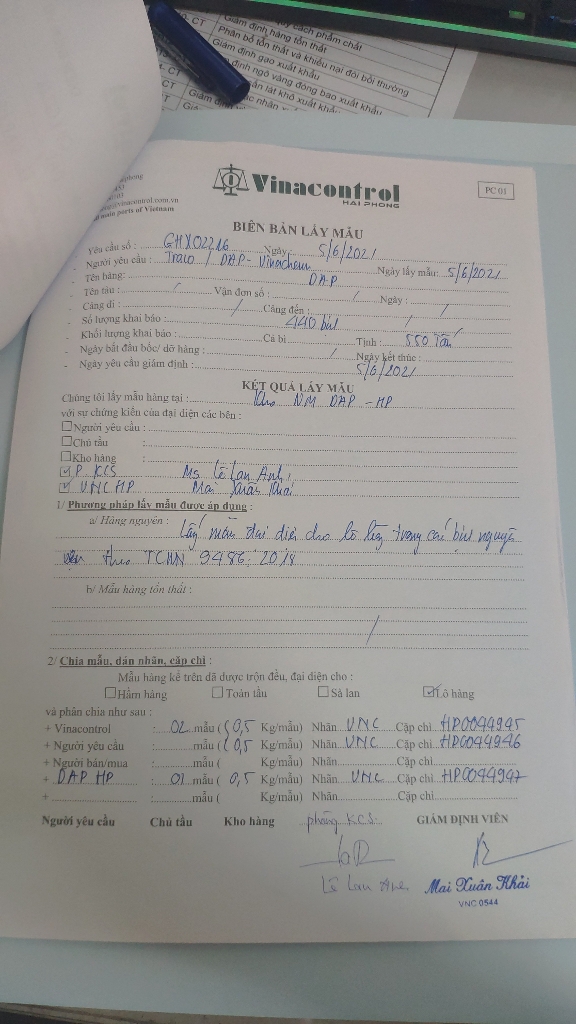 quy cách phẩm chất
Giám định hàng tổn thất
Phân bổ tổn thất và khiếu nại đòi bồi thường
Giám định gạo xuất khẩu
định ngô vàng đóng bao xuất khẩu
sắn lát khô xuất khẩu
CT
Vinacontrol
HAI PHONG
PC 01
@vinacontrol.com.vn
main ports of Vietnam
BIÊN BẢN LẤY MẪU
- Yêu cầu số : GHX02216 Ngày : 5/6/2021
- Người yêu cầu : Traco / DAP - Vinachem Ngày lấy mẫu: 5/6/2021
- Tên hàng: DAP
- Tên tàu : / Vận đơn số : / Ngày : /
- Cảng đi : / Cảng đến : /
- Số lượng khai báo : 440 bịch
- Khối lượng khai báo : Cả bì Tịnh : 550 Tấn
- Ngày bắt đầu bốc/ dỡ hàng : / Ngày kết thúc : /
- Ngày yêu cầu giám định : 5/6/2021
KẾT QUẢ LẤY MẪU
Chúng tôi lấy mẫu hàng tại : Kho NM DAP - HP
với sự chứng kiến của đại diện các bên :
Người yêu cầu :
Chủ tầu :
Kho hàng :
P KCS Ms Lê Lan Anh
VNC HP Mai Xuân Khải
1/ Phương pháp lấy mẫu được áp dụng :
a/ Hàng nguyên : Lấy mẫu đại diện cho lô hàng trong các bịch nguyên
vẹn theo TCVN 9486: 2018
b/ Mẫu hàng tổn thất :
/
2/ Chia mẫu, dán nhãn, cặp chì :
Mẫu hàng kể trên đã được trộn đều, đại diện cho :
Hầm hàng Toàn tầu Sà lan Lô hàng
và phân chia như sau :
+ Vinacontrol : 02 mẫu ( 0,5 Kg/mẫu) Nhãn VNC Cặp chì HP0044945
+ Người yêu cầu mẫu ( 0,5 Kg/mẫu) Nhãn VNC Cặp chì HP0044946
+ Người bán/mua : mẫu ( Kg/mẫu) Nhãn Cặp chì
+ DAP HP : 01 mẫu ( 0,5 Kg/mẫu) Nhãn VNC Cặp chì HP0044947
+ : mẫu ( Kg/mẫu) Nhãn Cặp chì
Người yêu cầu Chủ tầu Kho hàng phòng KCS GIÁM ĐỊNH VIÊN
Lê Lan Anh Mai Xuân Khải
VNC 0544